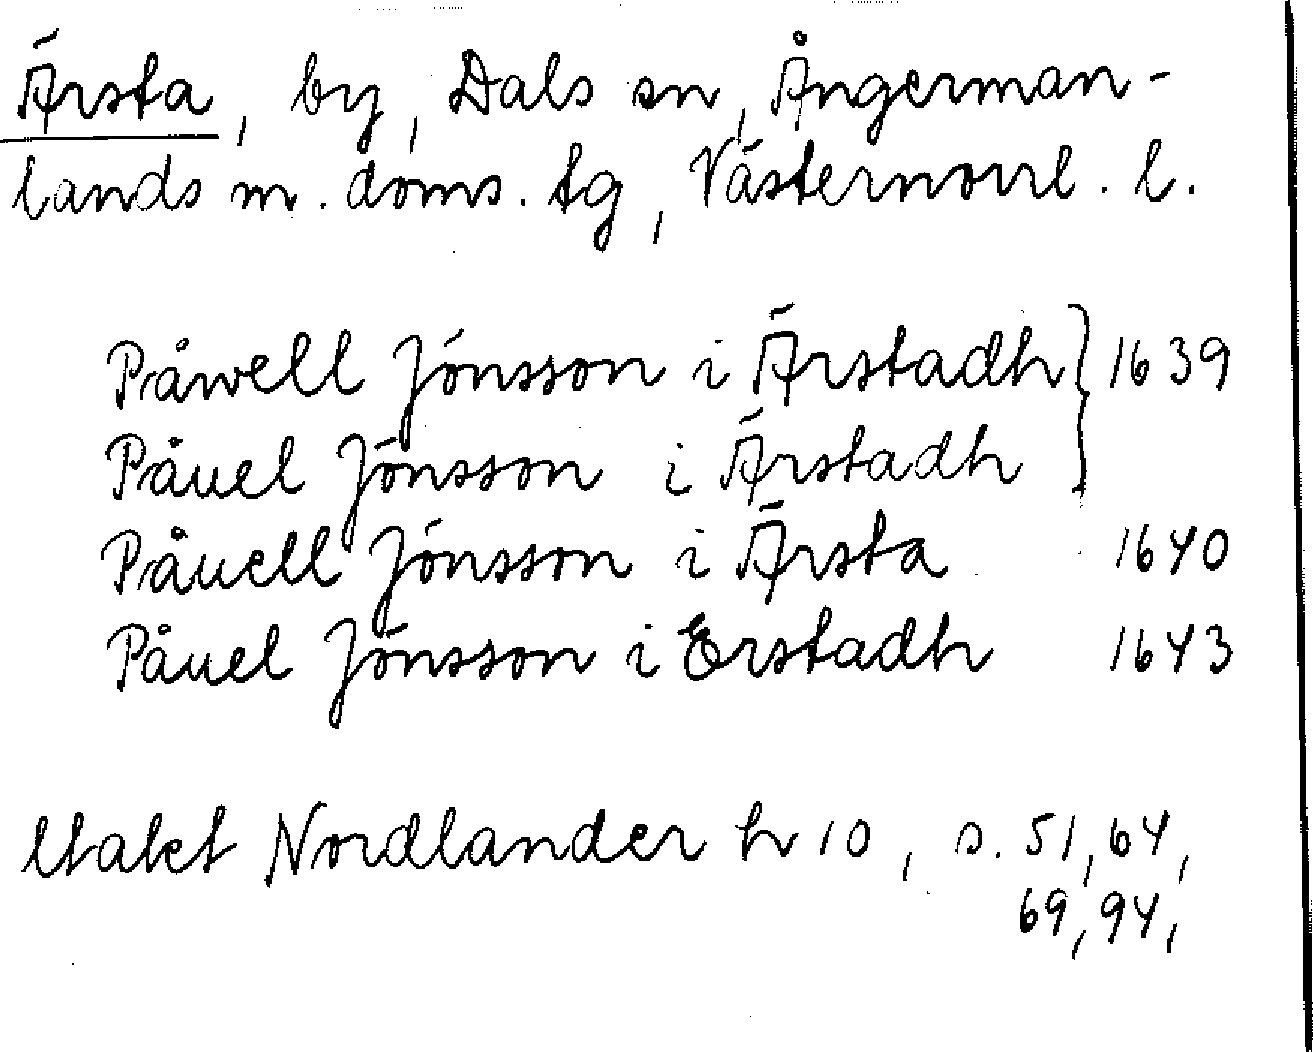 Ärsta, by, Dals sn, Ångerman-
lands m. doms. tg, Västernorrl. l.
Påwell Jönsson i Ärstadh } 1639
Påuel Jönsson i Ärstadh
Påuell Jönsson i Ärsta 1640
Påuel Jönsson i Erstadh 1643
Utakt Nordlander h 10, s. 51, 64,
69, 94,